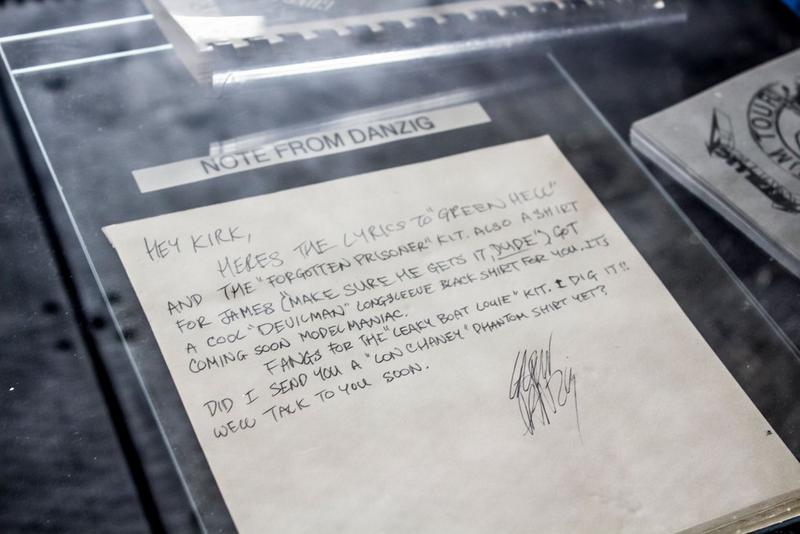 NOTE FROM DANZIG
HEY KIRK,
HERES THE LYRICS TO "GREEN HELL"
AND THE "FORGOTTEN PRISONER" KIT. ALSO A SHIRT
FOR JAMES ("MAKE SURE HE GETS IT, DUDE"). GOT
A COOL "DEVILMAN" LONGSLEEVE BLACK SHIRT FOR YOU. ITS
COMING SOON MODEL MANIAC.
FANGS FOR THE "LEAKY BOAT LOUIE" KIT. I DIG IT!!
DID I SEND YOU A "LON CHANEY" PHANTOM SHIRT YET?
WELL TALK TO YOU SOON.
TOUR
METALLICA